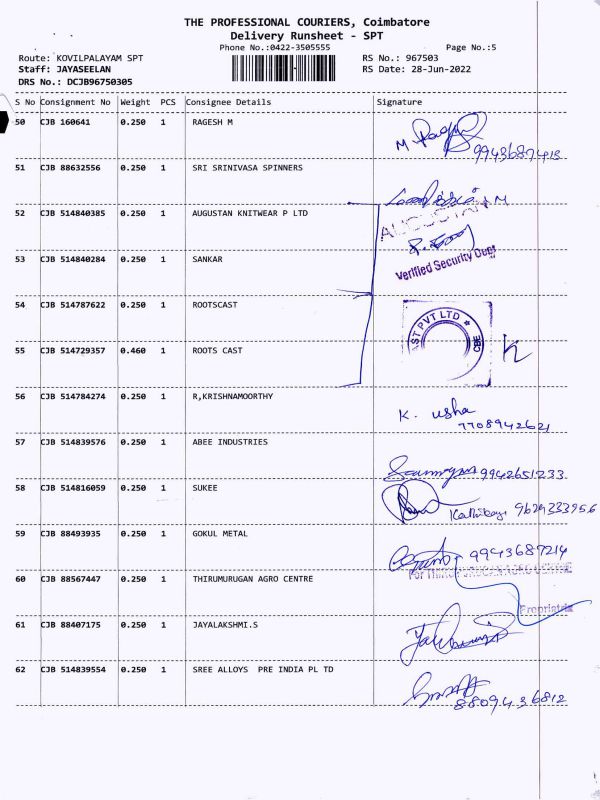 THE PROFESSIONAL COURIERS, Coimbatore
Delivery Runsheet - SPT
Phone No.:0422-3505555 Page No.:5
Route: KOVILPALAYAM SPT RS No.: 967503
Staff: JAYASEELAN RS Date: 28-Jun-2022
DRS No.: DCJB96750305
S No Consignment No Weight PCS Consignee Details Signature
50 CJB 160641 0.250 1 RAGESH M
M
9943687413
51 CJB 88632556 0.250 1 SRI SRINIVASA SPINNERS
52 CJB 514840385 0.250 1 AUGUSTAN KNITWEAR P LTD
AUGUSTAN
53 CJB 514840284 0.250 1 SANKAR
Verified Security Dept
54 CJB 514787622 0.250 1 ROOTSCAST
AST PVT LTD * CBE
55 CJB 514729357 0.460 1 ROOTS CAST
56 CJB 514784274 0.250 1 R,KRISHNAMOORTHY
K. usha
7708942621
57 CJB 514839576 0.250 1 ABEE INDUSTRIES
9942651233
58 CJB 514816059 0.250 1 SUKEE
9629333956
59 CJB 88493935 0.250 1 GOKUL METAL
9943687214
60 CJB 88567447 0.250 1 THIRUMURUGAN AGRO CENTRE
For THIRUMURUGAN AGRO CENTRE
Proprietrix
61 CJB 88407175 0.250 1 JAYALAKSHMI.S
62 CJB 514839554 0.250 1 SREE ALLOYS PRE INDIA PL TD
8809436812